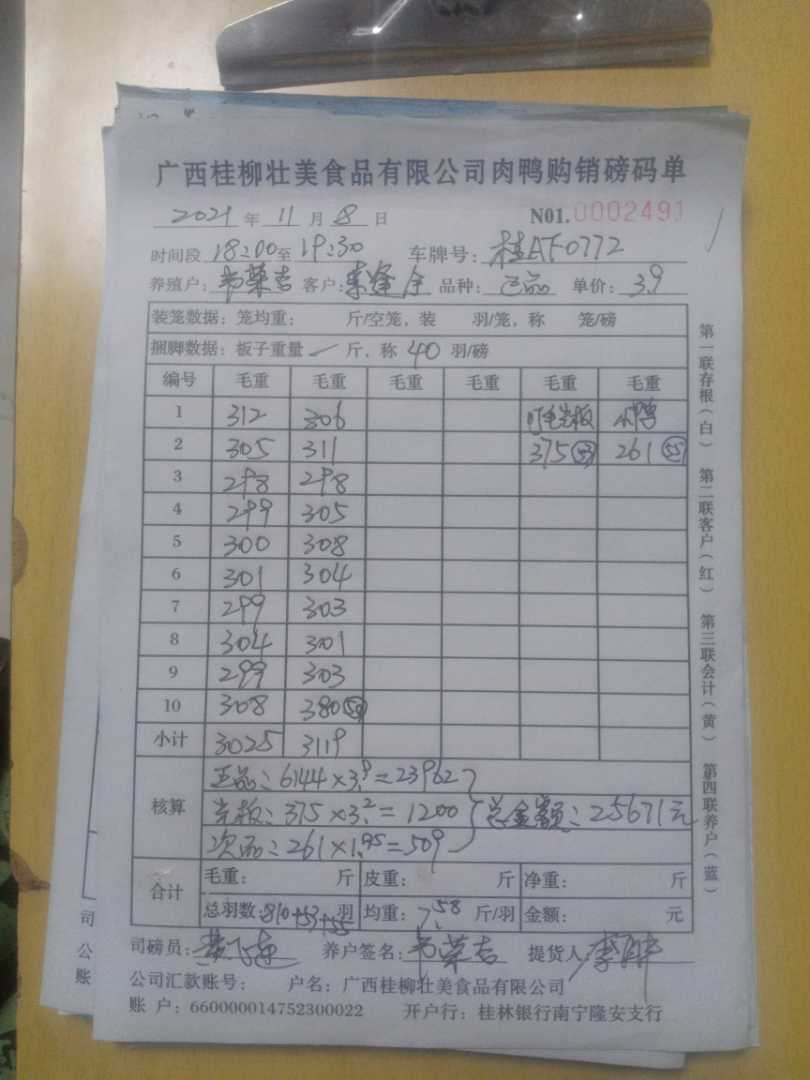 广西桂柳壮美食品有限公司肉鸭购销磅码单
2021 年 11 月 8 日 N01.0002491
时间段 18:00 至 19:30 车牌号: 桂AF0772
养殖户: 韦荣吉 客户: 品种: 正品 单价: 3.9
装笼数据: 笼均重: 斤/空笼, 装 羽/笼, 称 笼/磅
捆脚数据: 板子重量 一 斤, 称 40 羽/磅
编号 毛重 毛重 毛重 毛重 毛重 毛重
1 312 306 光板
2 305 311 375 53 261 55
3 298 298
4 299 305
5 300 308
6 301 304
7 299 303
8 304 301
9 299 303
10 308 380 50
小计 3025 3119
核算
正品: 6144×3.9=23962
光板: 375×3.2=1200 总金额: 25671元
次品: 261×1.95=509
合计
毛重: 斤 皮重: 斤 净重: 斤
总羽数: 810+53+55 羽 均重: 7.58 斤/羽 金额: 元
司磅员: 养户签名: 韦荣吉 提货人:
公司汇款账号: 户名: 广西桂柳壮美食品有限公司
账 户: 660000014752300022 开户行: 桂林银行南宁隆安支行
第一联存根(白) 第二联客户(红) 第三联会计(黄) 第四联养户(蓝)
司
公
账